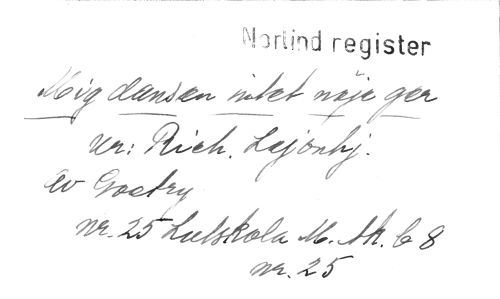 Norlind register
Mig dansen intet nöje ger
ur: Rich. Lejonhj.
av Gretry
nr. 25 Lutskola M. Ak. C 8
nr. 25